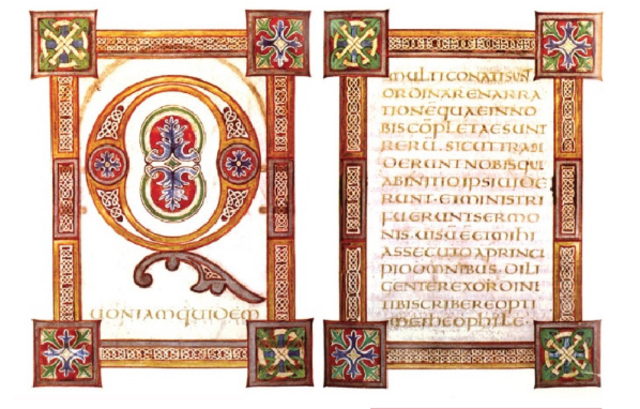 Q
UONIAMQUIDEM
MULTICONATISUN
ORDINARENARRA
TIONĒQUAEINNO
BISCŌPLETAESUNT
RERŪ. SICUTTRADI
DERUNTNOBISQUI
ABINITIOIPSIUIDE
RUNT·ETMINISTRI
FUERUNTSERMO
NIS·UISŪEETMIHI
ASSECUTOAPRINCI
PIOOMNIBUS·DILI
GENTEREXORDINE
TIBISCRIBEREOPTI
METHEOPHILE·